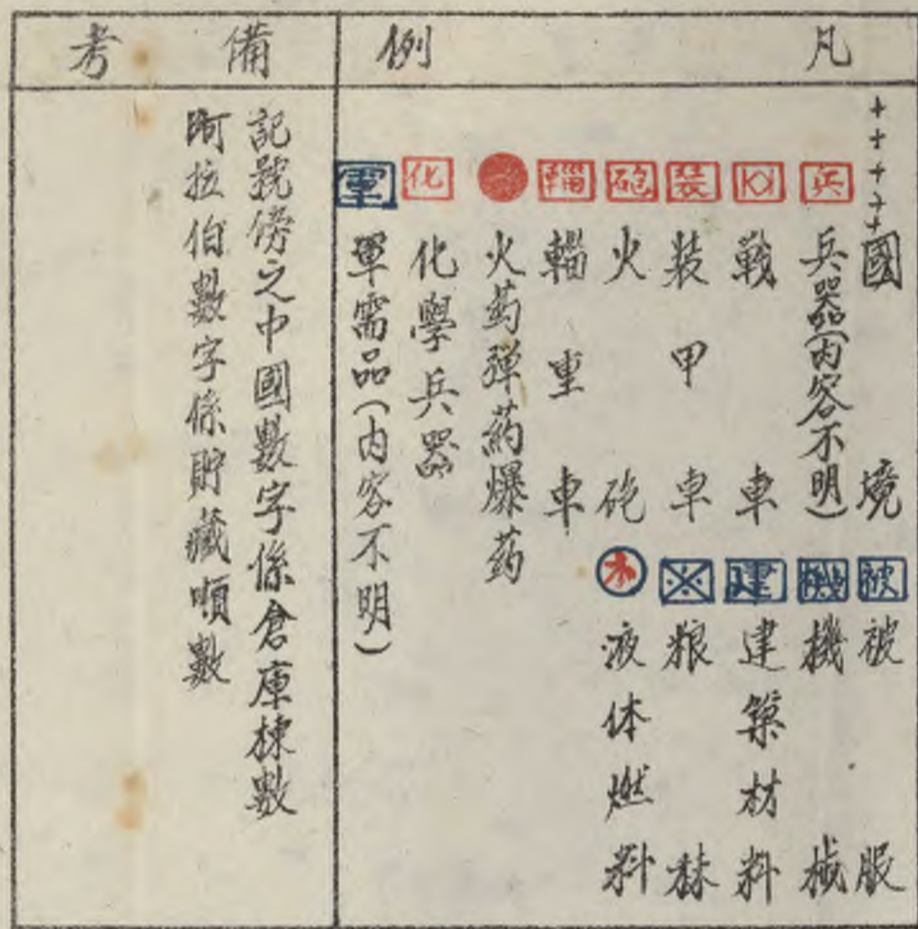 凡例
國境
兵 兵器(内容不明)
戦車
装 装甲車
砲 火砲
輜 輜重車
火药弹药爆药
化 化學兵器
軍 軍需品(内容不明)
被 被服
機 機械
建 建築材料
粮秣
液体燃料
備考
記號傍之中國數字係倉庫棟數
阿拉伯數字係貯藏噸數